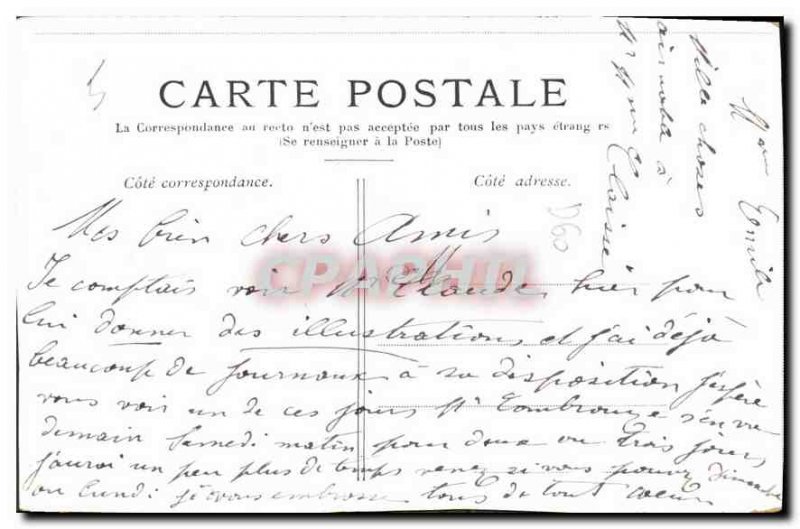 CARTE POSTALE
La Correspondance au recto n'est pas acceptée par tous les pays étrang rs
(Se renseigner à la Poste)
Côté correspondance.
Côté adresse.
D60
Mes bien chers Amis
Je comptais voir Mr Claude hier pour
lui donner des illustrations, et j'ai déjà
beaucoup de journaux à sa disposition j'espère
vous voir un de ces jours Mr s'en va
demain Samedi matin pour deux ou trois jours,
j'aurai un peu plus de temps venez si vous pouvez Dimanche
ou Lundi je vous embrasse tous de tout coeur
Mme Emile
Mille choses
aimables à
Mr Mme Claisse
CPARHII